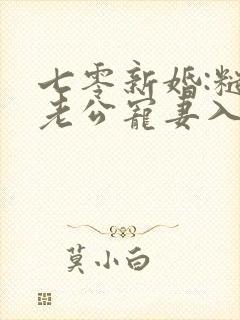 七零新婚:糙
老公宠妻入
莫小白